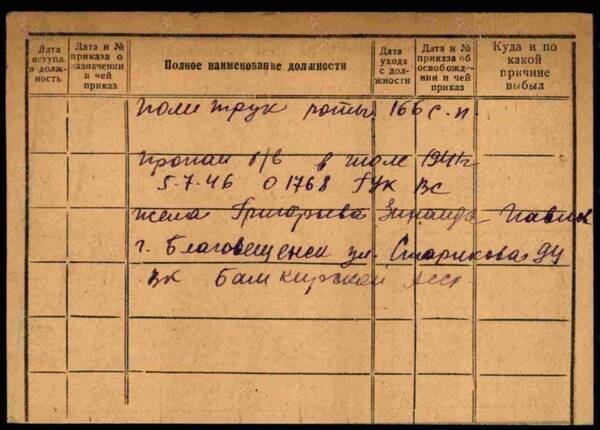 Дата вступл. в долж- ность
Дата и № приказа о назначении и чей приказ
Полное наименование должности
Дата ухода с долж- ности
Дата и № приказа об освобожде- нии и чей приказ
Куда и по какой причине выбыл
политрук роты 166 с.п
пропал б/в в июле 1941г
5-7-46 01768 ГУК ВС
жена Григорьева Зинаида Павл
г. Благовещенск ул. Старикова 94
вк Башкирской